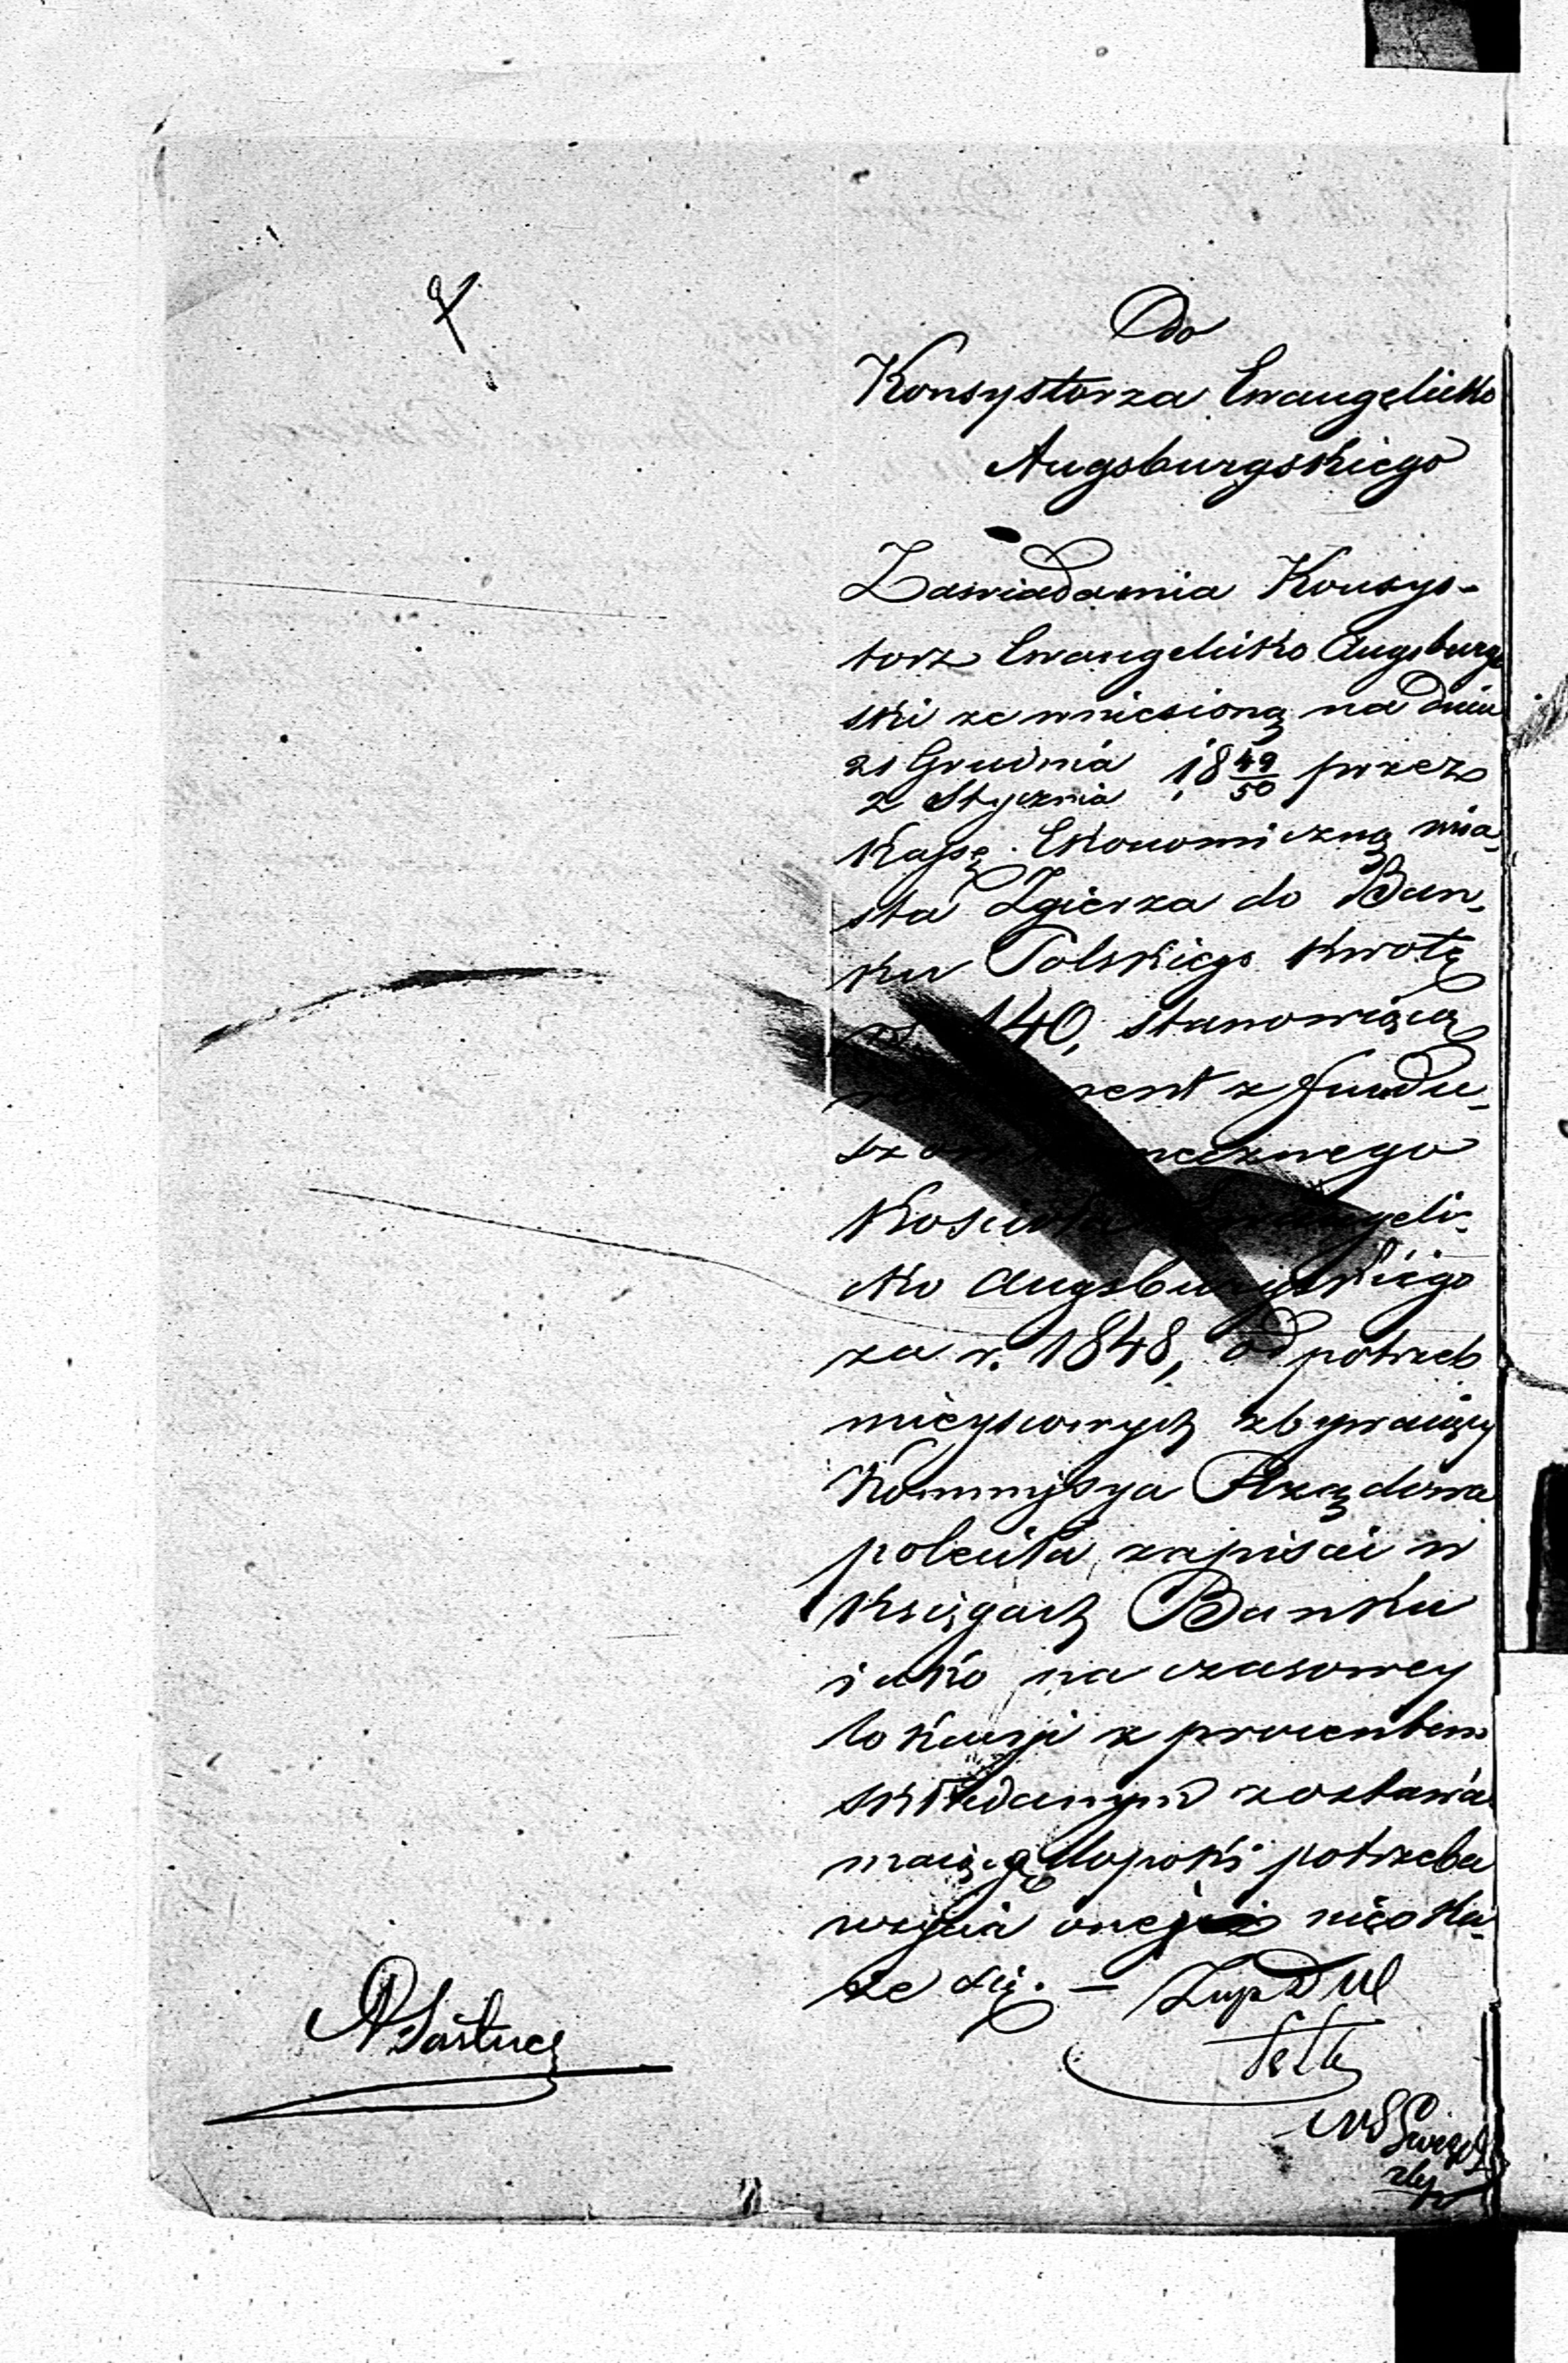 Do
Konsystorza Ewangelicko
Augsburgskiego
Zawiadamia Konsys-
torz Ewangelicko Augsburg
ski że wniesioną na dniu
21 Grudnia
2 Stycznia 18 49/50 przez
Kassę Ekonomiczną mia,
sta Zgierza do Ban,
ku Polskiego kwotę
140, stanowiącą
z fundu,
Kościoła Ewangeli,
cko Augsburgskiego
za r. 1848, od potrzeb
mieyscowych zbywaiący
Kommissya Rządowa
poleciła zapisać w
księgach Banku
iako na czasowey
lokacyi z procentem
składanym zostawać
maiącą dopóki potrzeba
użycia oney nieoka,
że się. —